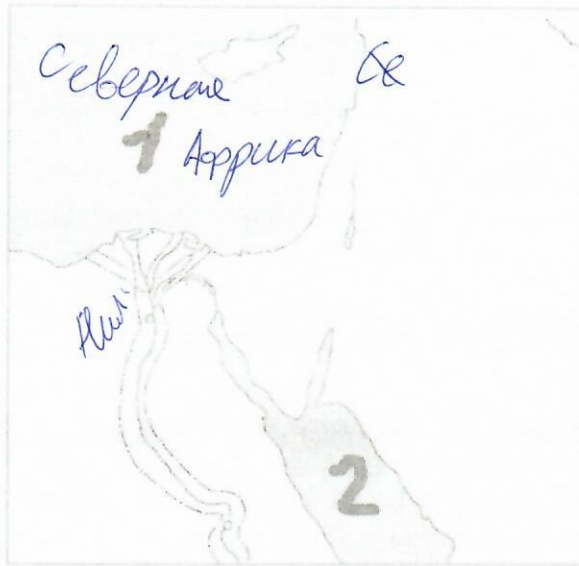 Северная
1 Африка
Нил
2